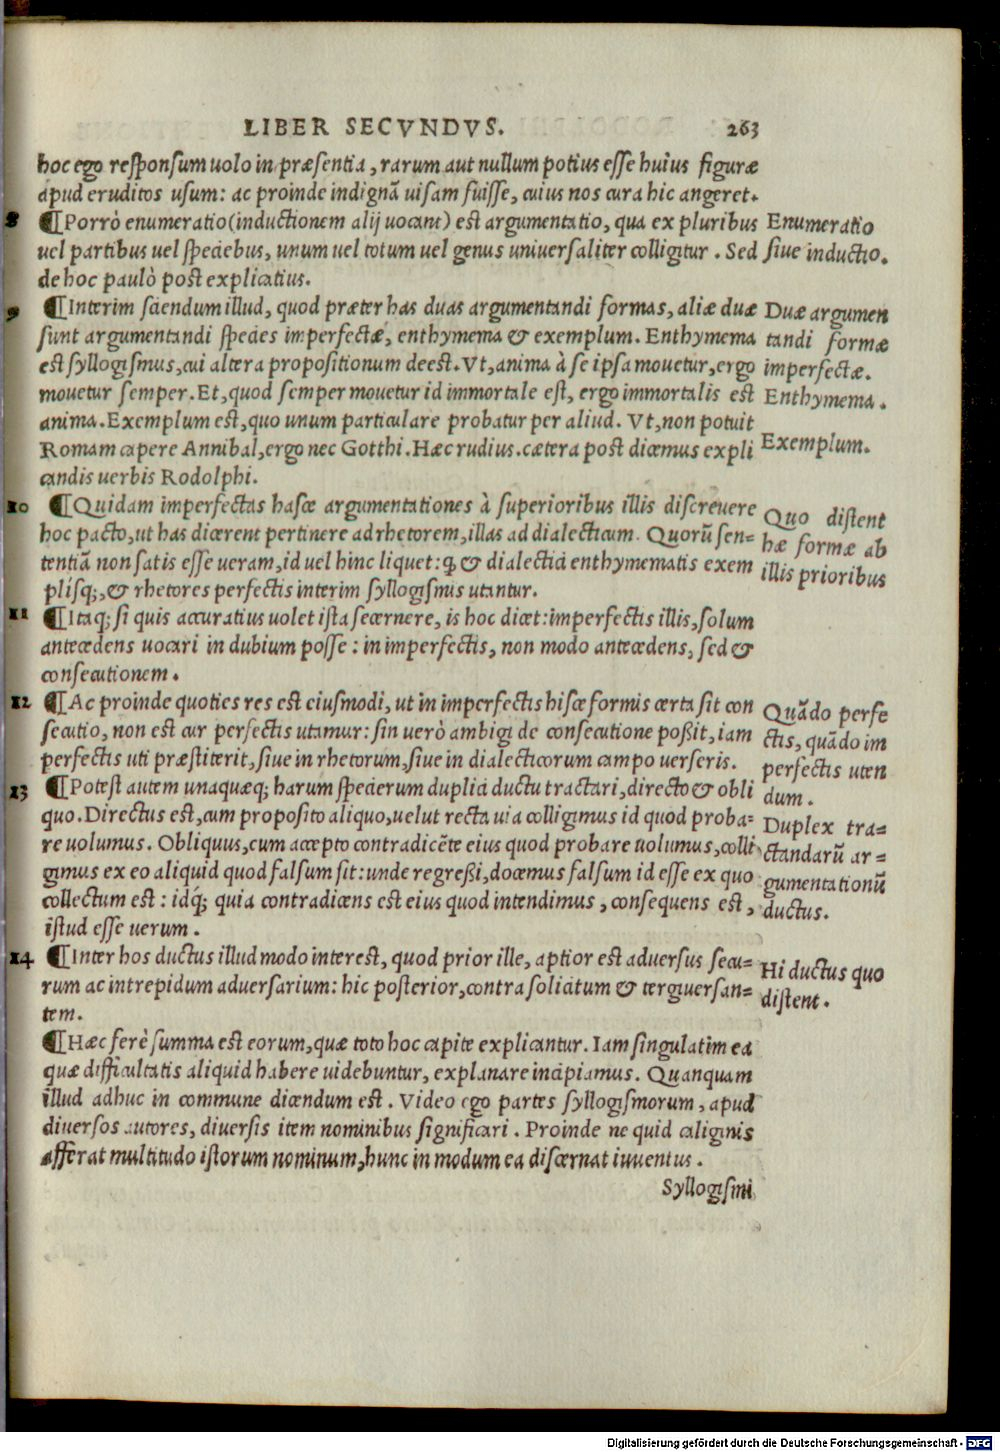 LIBER SECVNDVS. 263
hoc ego responsum uolo in præsentia, rarum aut nullum potius esse huius figuræ
apud eruditos usum: ac proinde indignā uisam fuisse, cuius nos cura hic angeret.
8 ¶Porrò enumeratio (inductionem alij uocant) est argumentatio, qua ex pluribus
uel partibus uel speciebus, unum uel totum uel genus uniuersaliter colligitur. Sed
de hoc paulò post explicatius.
Enumeratio
siue inductio.
9 ¶Interim sciendum illud, quod præter has duas argumentandi formas, aliæ duæ
sunt argumentandi species imperfectæ, enthymema & exemplum. Enthymema
est syllogismus, cui altera propositionum deest. Vt, anima à se ipsa mouetur, ergo
mouetur semper. Et, quod semper mouetur id immortale est, ergo immortalis est
anima. Exemplum est, quo unum particulare probatur per aliud. Vt, non potuit
Romam capere Annibal, ergo nec Gotthi. Hæc rudius. cætera post dicemus expli
candis uerbis Rodolphi.
Duæ argumen
tandi formæ
imperfectæ.
Enthymema.
Exemplum.
10 ¶Quidam imperfectas hasce argumentationes à superioribus illis discreuere
hoc pacto, ut has dicerent pertinere ad rhetorem, illas ad dialecticum. Quorū sen=
tentiā non satis esse ueram, id uel hinc liquet: ꝙ & dialectici enthymematis exem
plisq;, & rhetores perfectis interim syllogismis utantur.
Quo distent
hæ formæ ab
illis prioribus
11 ¶Itaq; si quis accuratius uolet ista secernere, is hoc dicet: imperfectis illis, solum
antecedens uocari in dubium posse: in imperfectis, non modo antecedens, sed &
consecutionem.
12 ¶Ac proinde quoties res est eiusmodi, ut in imperfectis hisce formis certa sit con
secutio, non est cur perfectis utamur: sin uerò ambigi de consecutione poßit, iam
perfectis uti præstiterit, siue in rhetorum, siue in dialecticorum campo uerseris.
Quādo perfe
ctis, quādo im
perfectis uten
dum.
13 ¶Potest autem unaquæq; harum specierum duplici ductu tractari, directo & obli
quo. Directus est, cum proposito aliquo, uelut recta uia colligimus id quod proba=
re uolumus. Obliquus, cum accepto contradicēte eius quod probare uolumus, colli
gimus ex eo aliquid quod falsum sit: unde regreßi, docemus falsum id esse ex quo
collectum est: idq́; quia contradicens est eius quod intendimus, consequens est,
istud esse uerum.
Duplex tra=
ctandarū ar=
gumentationū
ductus.
14 ¶Inter hos ductus illud modo interest, quod prior ille, aptior est aduersus secu=
rum ac intrepidum aduersarium: hic posterior, contra solicitum & tergiuersan=
tem.
Hi ductus quo
distent.
¶Hæc ferè summa est eorum, quæ toto hoc capite explicantur. Iam singulatim ea
quæ difficultatis aliquid habere uidebuntur, explanare incipiamus. Quanquam
illud adhuc in commune dicendum est. Video ego partes syllogismorum, apud
diuersos autores, diuersis item nominibus significari. Proinde ne quid caliginis
afferat multitudo istorum nominum, hunc in modum ea discernat iuuentus.
Syllogismi
Digitalisierung gefördert durch die Deutsche Forschungsgemeinschaft - DFG